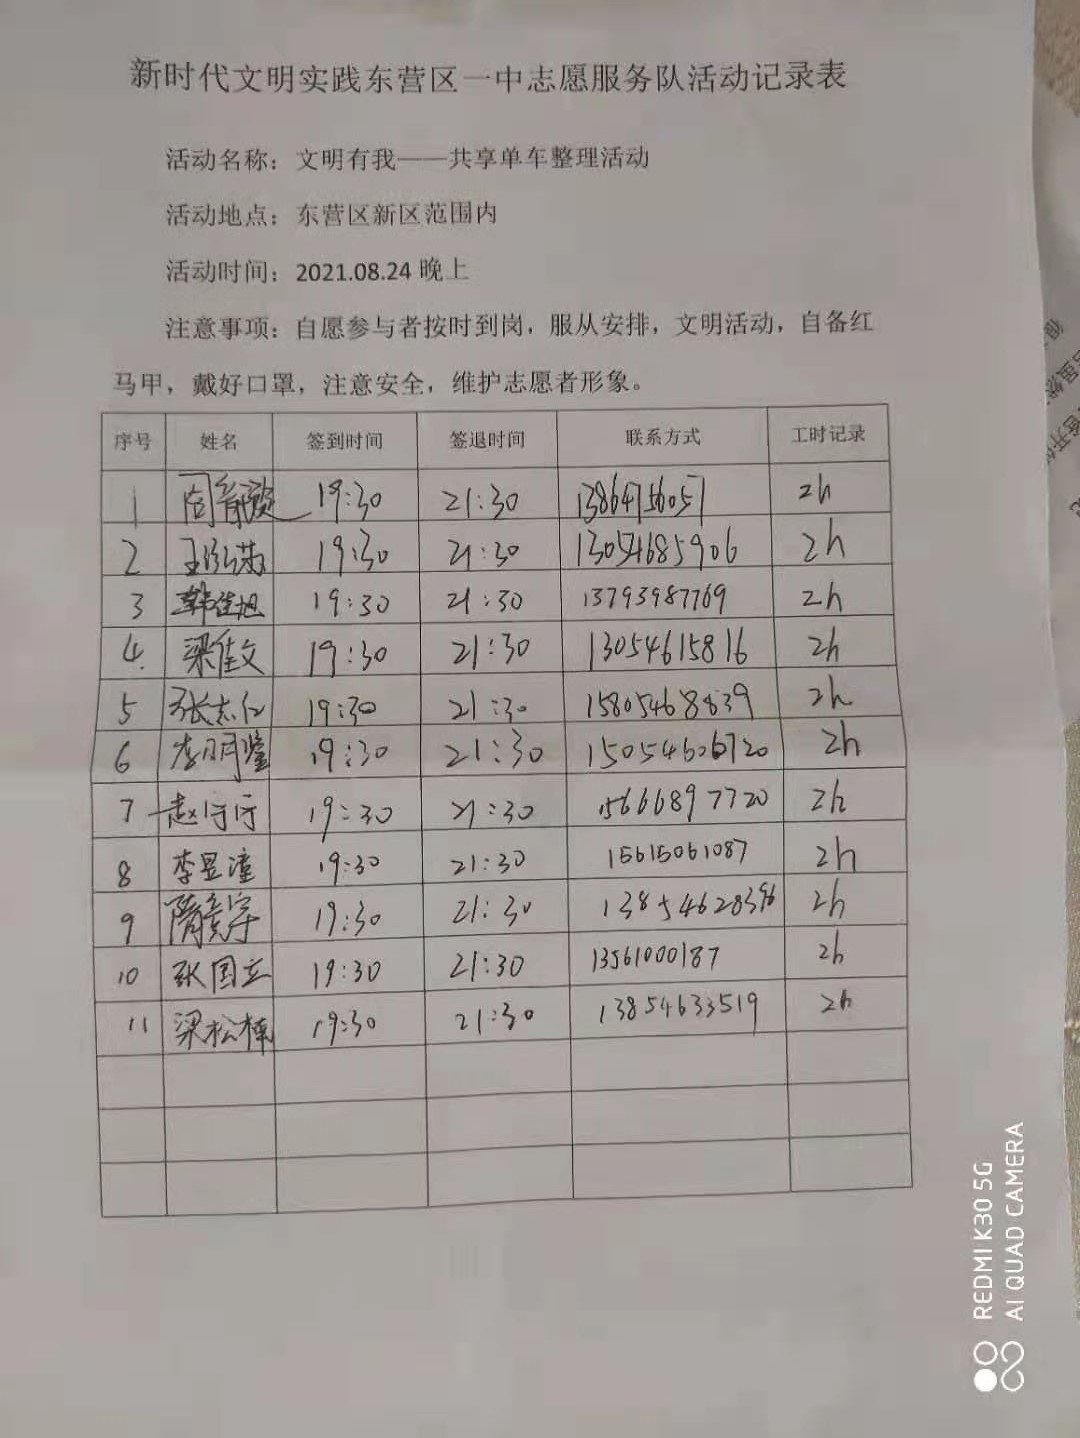 新时代文明实践东营区一中志愿服务队活动记录表
活动名称：文明有我——共享单车整理活动
活动地点：东营区新区范围内
活动时间：2021.08.24 晚上
注意事项：自愿参与者按时到岗，服从安排，文明活动，自备红
马甲，戴好口罩，注意安全，维护志愿者形象。
序号 姓名 签到时间 签退时间 联系方式 工时记录
1 19:30 21:30 13864756057 2h
2 19:30 21:30 13054685906 2h
3 韩佳旭 19:30 21:30 13793987769 2h
4. 梁佳文 19:30 21:30 13054615816 2h
5 张志仁 19:30 21:30 15805468839 2h
6 李明鉴 19:30 21:30 15054606720 2h
7 赵行行 19:30 21:30 15666897720 2h
8 李昱潼 19:30 21:30 15615061087 2h
9 隋 19:30 21:30 13854628396 2h
10 张国立 19:30 21:30 13561000187 2h
11 梁松楠 19:30 21:30 13854633519 2h
REDMI K30 5G
AI QUAD CAMERA